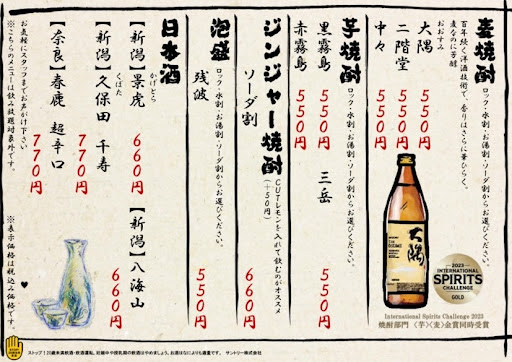 麦焼酎
ロック・水割・お湯割・ソーダ割からお選びください。
百年続く洋酒技術で、香りはさらに華ひらく。
麦なのに芳醇
おおすみ
大隅 550円
二階堂 550円
中々 550円
芋焼酎
ロック・水割・お湯割・ソーダ割からお選びください。
黒霧島 550円
三岳 550円
赤霧島 550円
ジンジャー焼酎
CUTレモンを入れて飲むのがオススメ
(+50円)
ソーダ割 660円
泡盛
ロック・水割・お湯割・ソーダ割からお選びください。
残波 550円
日本酒
かげとら
【新潟】景虎 660円
【新潟】八海山 660円
くぼた
【新潟】久保田 千寿 770円
【奈良】春鹿 超辛口 770円
お気軽にスタッフまでお声がけ下さい
※こちらのメニューは飲み放題対象外です。
※表示価格は税込み価格です。
大隅
2023
INTERNATIONAL
SPIRITS
CHALLENGE
GOLD
International Spirits Challenge 2023
焼酎部門 〈芋〉〈麦〉金賞同時受賞
ストップ!20歳未満飲酒・飲酒運転。妊娠中や授乳期の飲酒はやめましょう。お酒はなによりも適量です。 サントリー株式会社